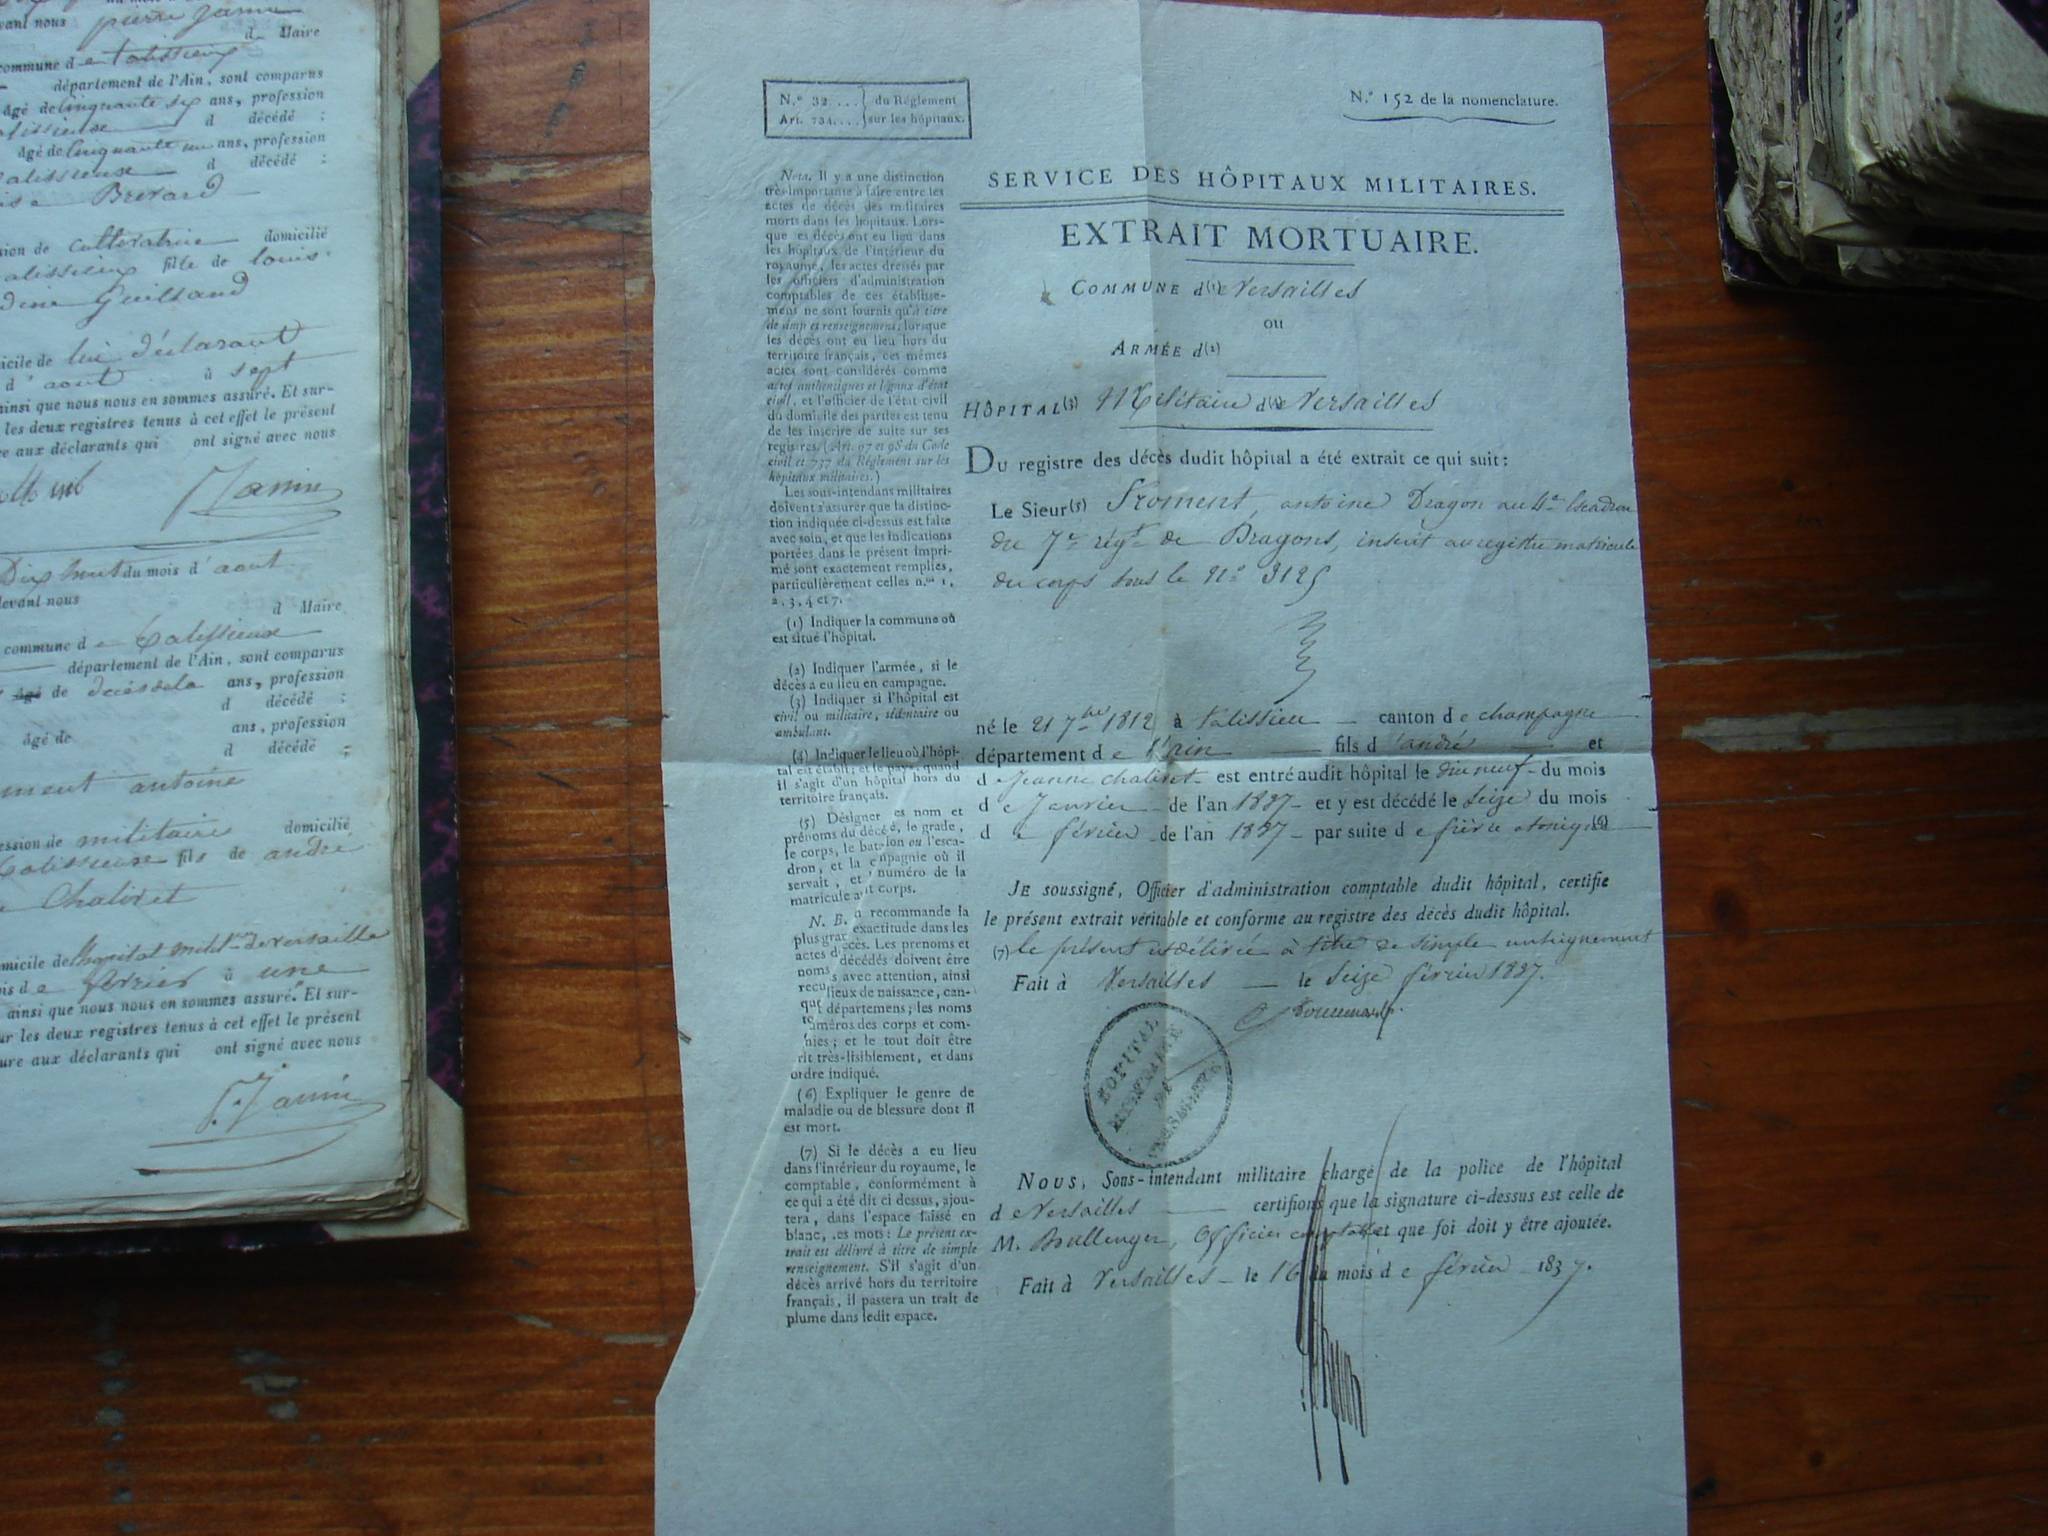 vant nous pierre Janin
d Maire
commune d e talissieu
département de l'Ain, sont comparus
âgé de cinquante six ans, profession
d décédé :
âgé de Cinquante un ans, profession
d décédé :
Brerard
sion de cultivatrice domicilié
fille de louis
Guilland
icile de lui déclarant
d'aout à sept
ainsi que nous nous en sommes assuré. Et sur-
les deux registres tenus à cet effet le présent
e aux déclarants qui ont signé avec nous
Janin
Dix huit du mois d'aout
devant nous
d Maire
commune d e
département de l'Ain, sont comparus
âgé de ans, profession
d décédé :
ans, profession
âgé de d décédé :
ment antoine
ession de militaire domicilié
fils de andré
Chaliret
micile de hopital milit.re de versaille
is d e fevrier à une
ainsi que nous nous en sommes assuré. Et sur-
ur les deux registres tenus à cet effet le présent
ure aux déclarants qui ont signé avec nous
P. Janin
N.º 32 ... } du Réglement
Art. 734.... } sur les hôpitaux.
N.º 152 de la nomenclature.
SERVICE DES HÔPITAUX MILITAIRES.
EXTRAIT MORTUAIRE.
COMMUNE d(1) e Versailles
ou
ARMÉE d(2)
HÔPITAL(3) Militaire d(4) e Versailles
Du registre des décès dudit hôpital a été extrait ce qui suit :
Le Sieur(5) Froment, antoine Dragon au 4e Escadron
du 7e régt de Dragons, inscrit au registre matricule
du corps sous le Nº 3125
né le 21 7bre 1812 à talissieu canton d e champagne
département d e l'ain fils d 'andré et
d e Jeanne chaliret est entré audit hôpital le dix neuf du mois
d e Janvier de l'an 1837 et y est décédé le Seize du mois
d e février de l'an 1837 par suite d e fièvre (6)
JE soussigné, Officier d'administration comptable dudit hôpital, certifie
le présent extrait véritable et conforme au registre des décès dudit hôpital.
(7) le présent est délivré à titre de simple renseignement
Fait à Versailles le Seize février 1837.
HOPITAL MILITAIRE DE VERSAILLES
NOUS, Sous-intendant militaire chargé de la police de l'hôpital
d e Versailles certifions que la signature ci-dessus est celle de
M. Boullenger, Officier comptable et que foi doit y être ajoutée.
Fait à Versailles le 16 du mois d e février 1837.
Nota. Il y a une distinction
très-importante à faire entre les
actes de décès des militaires
morts dans les hôpitaux. Lors-
que les décès ont eu lieu dans
les hôpitaux de l'intérieur du
royaume, les actes dressés par
les officiers d'administration
comptables de ces établisse-
mens ne sont fournis qu'à titre
de simple renseignement; lorsque
les décès ont eu lieu hors du
territoire français, ces mêmes
actes sont considérés comme
actes authentiques et légaux d'état
civil, et l'officier de l'état civil
du domicile des parties est tenu
de les inscrire de suite sur ses
registres. (Art. 97 et 98 du Code
civil et 737 du Réglement sur les
hôpitaux militaires.)
Les sous-intendans militaires
doivent s'assurer que la distinc-
tion indiquée ci-dessus est faite
avec soin, et que les indications
portées dans le présent impri-
mé sont exactement remplies,
particulièrement celles n.os 1,
2, 3, 4 et 7.
(1) Indiquer la commune où
est situé l'hôpital.
(2) Indiquer l'armée, si le
décès a eu lieu en campagne.
(3) Indiquer si l'hôpital est
civil ou militaire, sédentaire ou
ambulant.
(4) Indiquer le lieu où l'hôpi-
tal est établi; et le pays, quand
il s'agit d'un hôpital hors du
territoire français.
(5) Désigner es nom et
prénoms du décédé, le grade,
le corps, le bataillon ou l'esca-
dron, et la compagnie où il
servait, et numéro de la
matricule au corps.
N. B. recommande la
plus gran exactitude dans les
actes d décès. Les prénoms et
noms décédés doivent être
recu s avec attention, ainsi
que lieux de naissance, can-
to départemens; les noms
uméros des corps et com-
nies; et le tout doit être
rit très-lisiblement, et dans
ordre indiqué.
(6) Expliquer le genre de
maladie ou de blessure dont il
est mort.
(7) Si le décès a eu lieu
dans l'intérieur du royaume, le
comptable, conformément à
ce qui a été dit ci dessus, ajou-
tera, dans l'espace laissé en
blanc, ces mots : Le présent ex-
trait est délivré à titre de simple
renseignement. S'il s'agit d'un
décès arrivé hors du territoire
français, il passera un trait de
plume dans ledit espace.